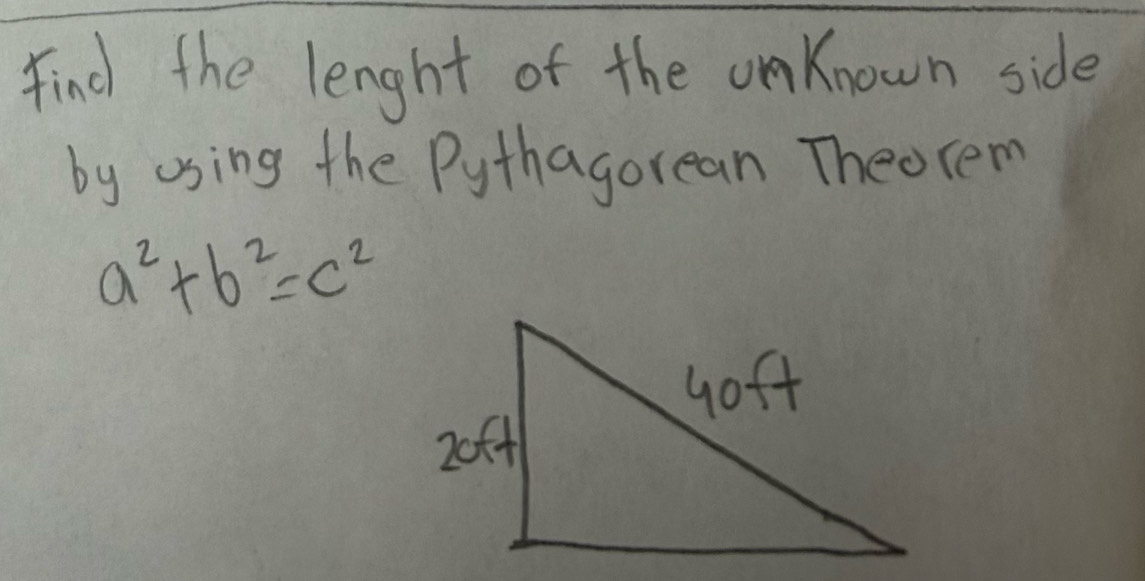 Find the lenght of the unknown side
by using the Pythagorean Theorem
a²+b²=c²
40ft
20ft